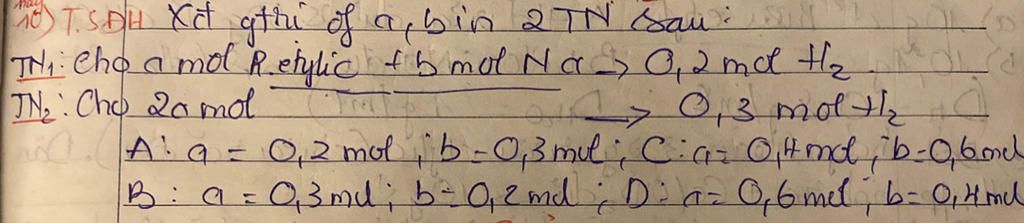 10) T.SĐH Xđ gtri of a, b in 2 TN sau:
TN1: Cho a mol R.etylic + b mol Na → 0,2 mol H2
TN2: Cho 2a mol → 0,3 mol H2
A: a = 0,2 mol; b = 0,3 mol; C: a = 0,4 mol; b = 0,6 mol
B: a = 0,3 mol; b = 0,2 mol; D: a = 0,6 mol; b = 0,4 mol